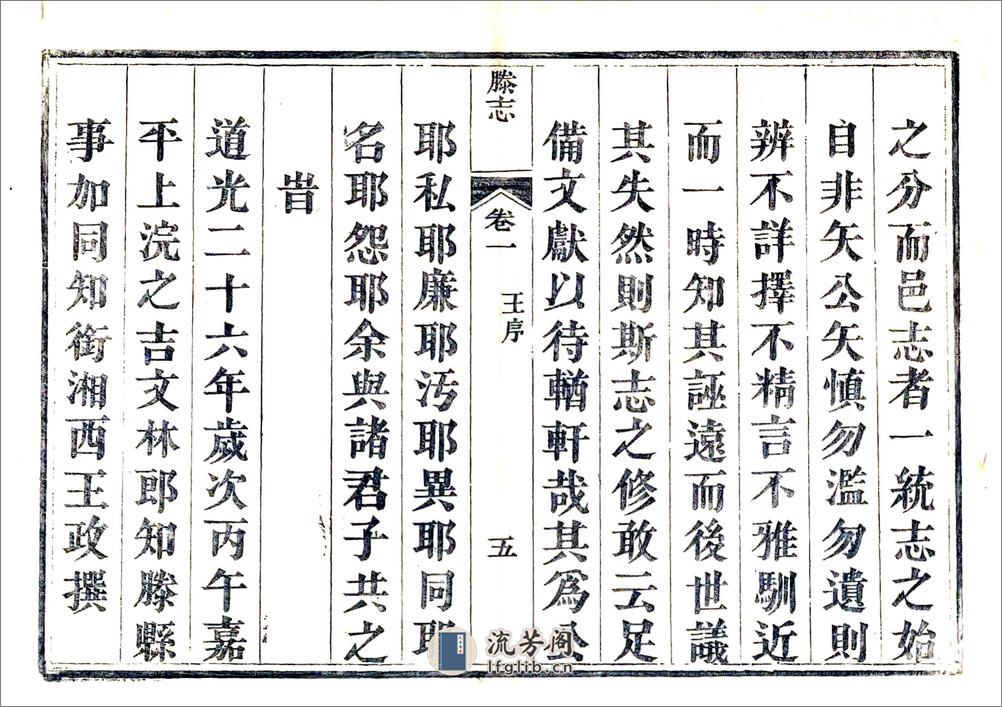 之分而邑志者一統志之始
自非矢公矢慎勿濫勿遺則
辨不詳擇不精言不雅馴近
而一時知其誣遠而後世議
其失然則斯志之修敢云足
備文獻以待輶軒哉其爲公
滕志
卷一
王序
五
耶私耶廉耶汚耶異耶同耶
名耶怨耶余與諸君子共之
旹
道光二十六年歲次丙午嘉
平上浣之吉文林郎知滕縣
事加同知銜湘西王政撰
流芳阁
lfglib.cn